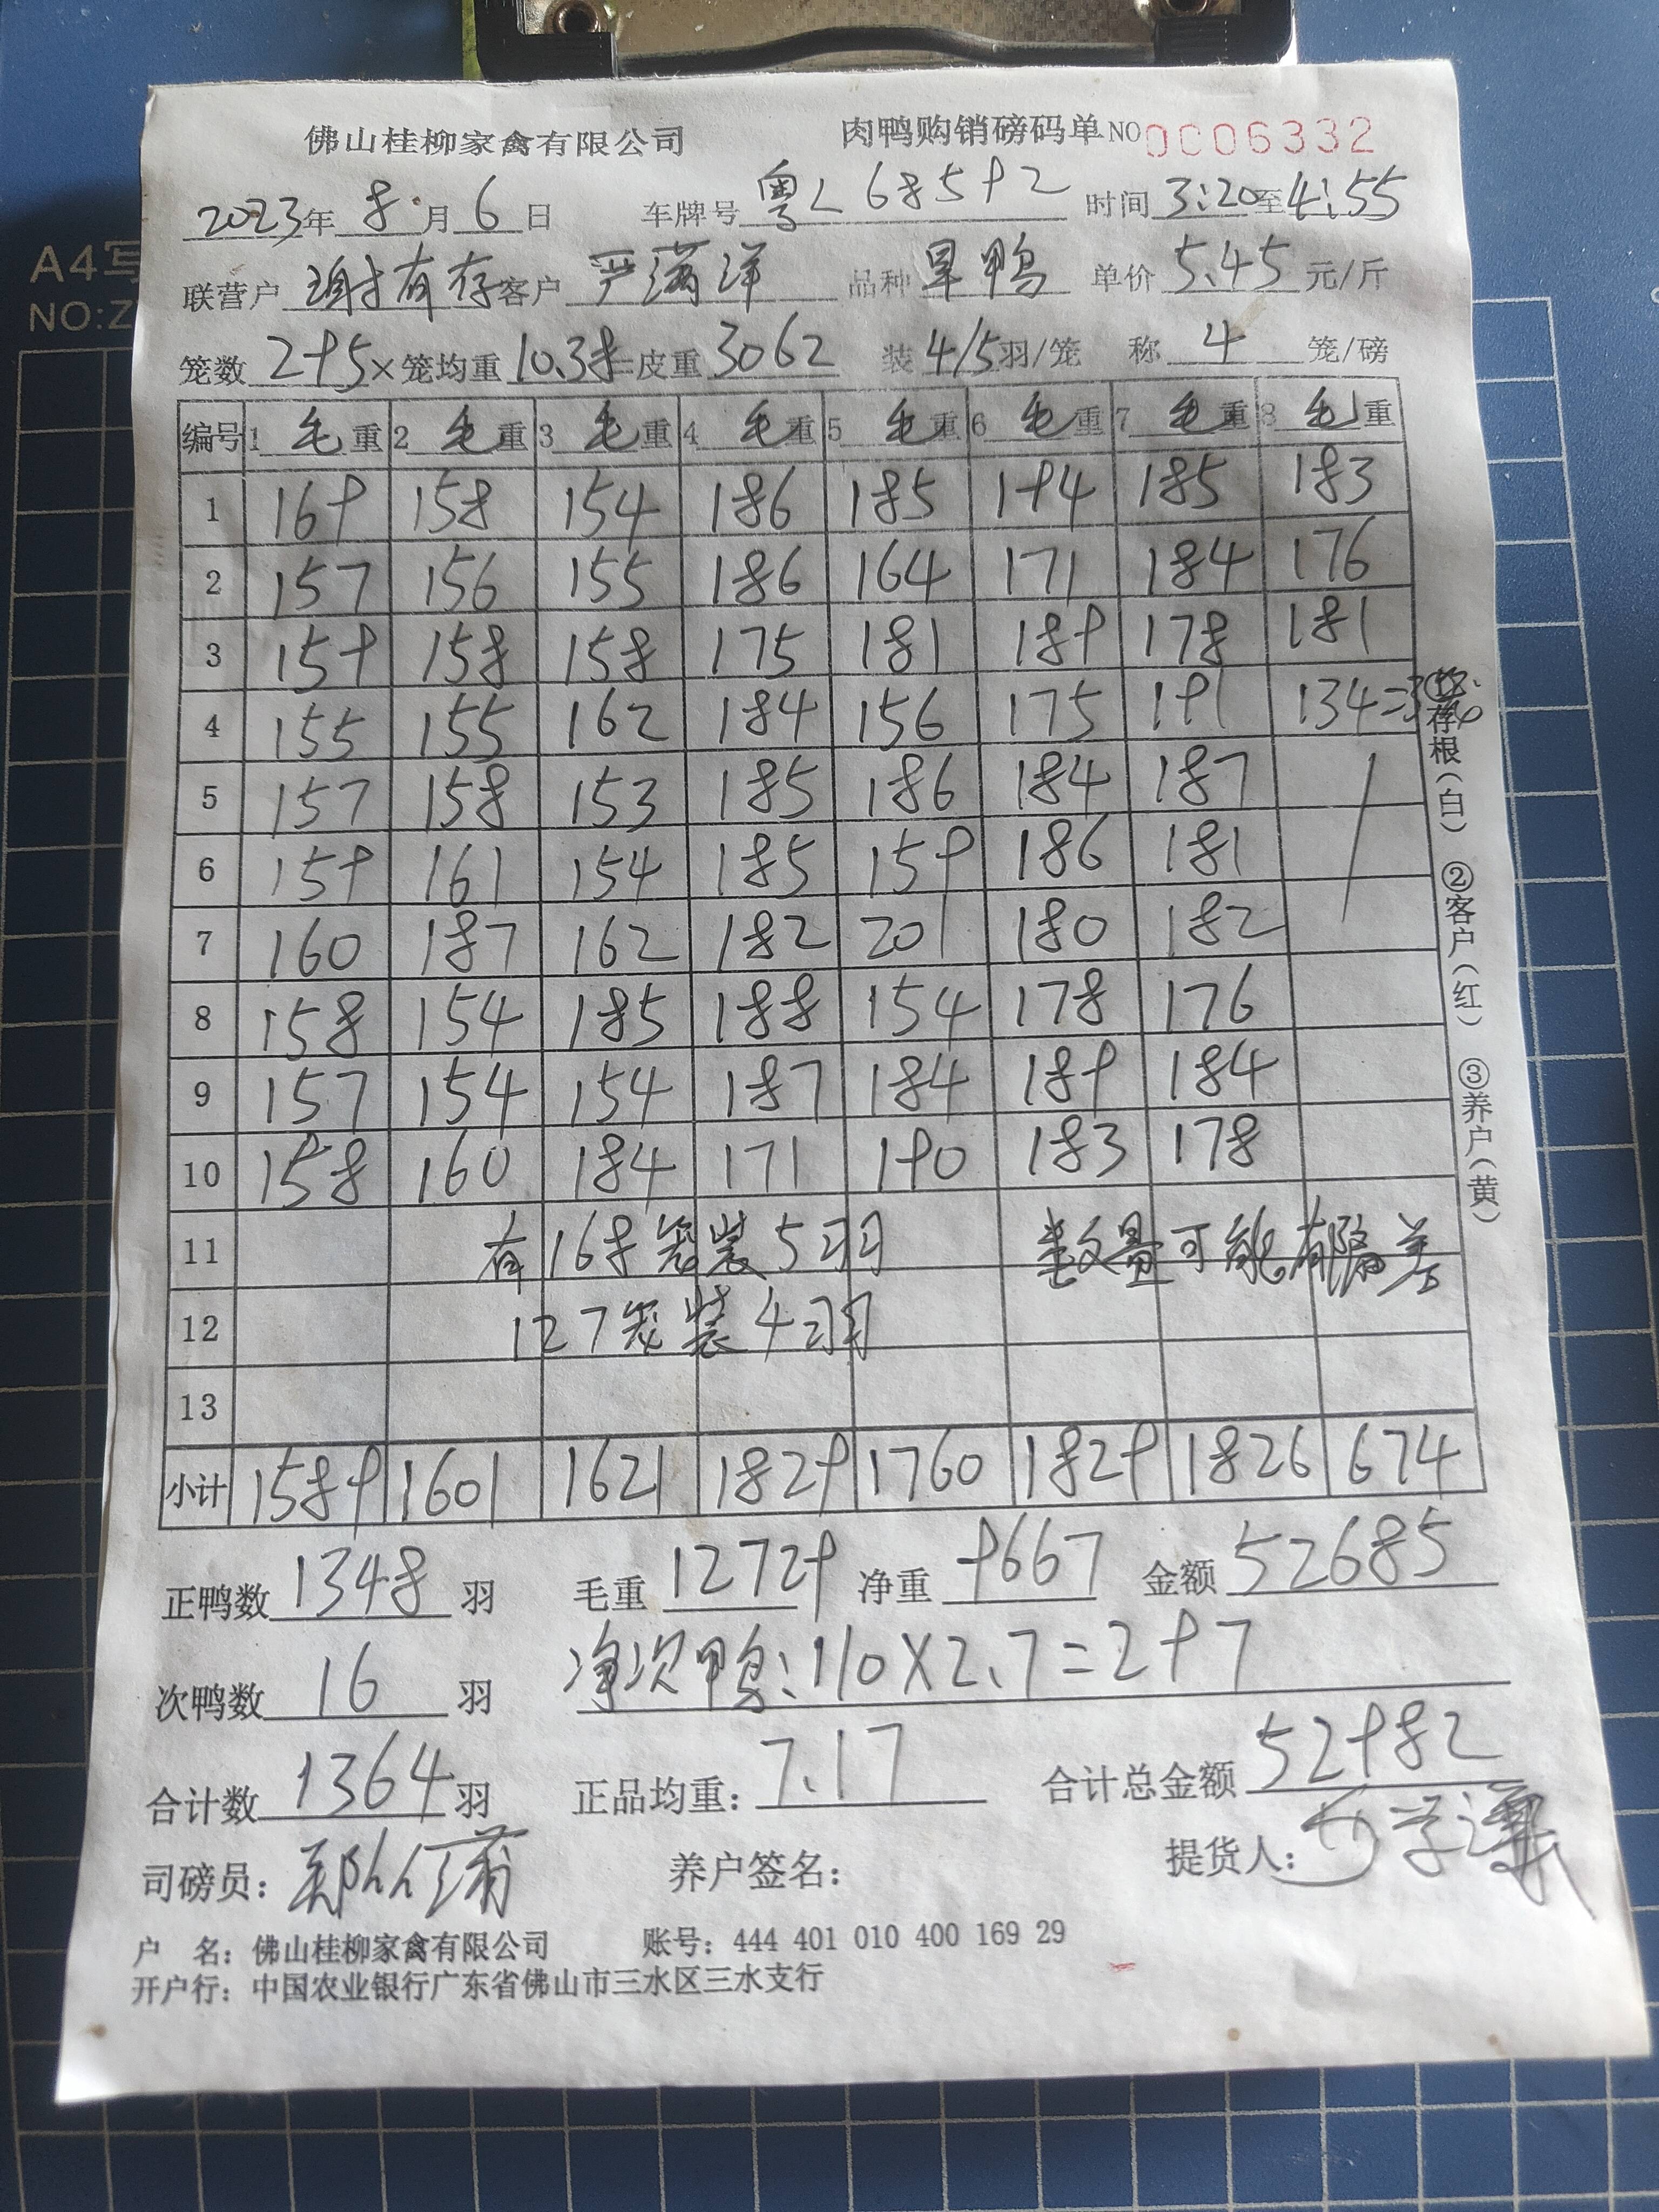 佛山桂柳家禽有限公司 肉鸭购销磅码单 NO 0006332
2023年 8月6日 车牌号 粤L68592 时间 3:20至4:55
联营户 谢有存 客户 严满洋 品种 旱鸭 单价 5.45 元/斤
笼数 295×笼均重 10.38=皮重 3062 装 4/5羽/笼 称 4 笼/磅
编号 1 毛重 2 毛重 3 毛重 4 毛重 5 毛重 6 毛重 7 毛重 8 毛重
1 169 158 154 186 185 194 185 183
2 157 156 155 186 164 171 184 176
3 159 158 158 175 181 189 178 181
4 155 155 162 184 156 175 191 134=3笼
5 157 158 153 185 186 184 187
6 159 161 154 185 159 186 181
7 160 187 162 182 201 180 182
8 158 154 185 188 154 178 176
9 157 154 154 187 184 189 184
10 158 160 184 171 190 183 178
11 有168笼装5羽 数量可能有偏差
12 127笼装4羽
13
小计 1589 1601 1621 1829 1760 1829 1826 674
正鸭数 1348 羽 毛重 12729 净重 9667 金额 52685
次鸭数 16 羽 净次鸭:110×2.7=297
合计数 1364 羽 正品均重: 7.17 合计总金额 52982
司磅员: 养户签名: 提货人:
户 名: 佛山桂柳家禽有限公司 账号: 444 401 010 400 169 29
开户行: 中国农业银行广东省佛山市三水区三水支行
①存根(白) ②客户(红) ③养户(黄)
A4写
NO:Z